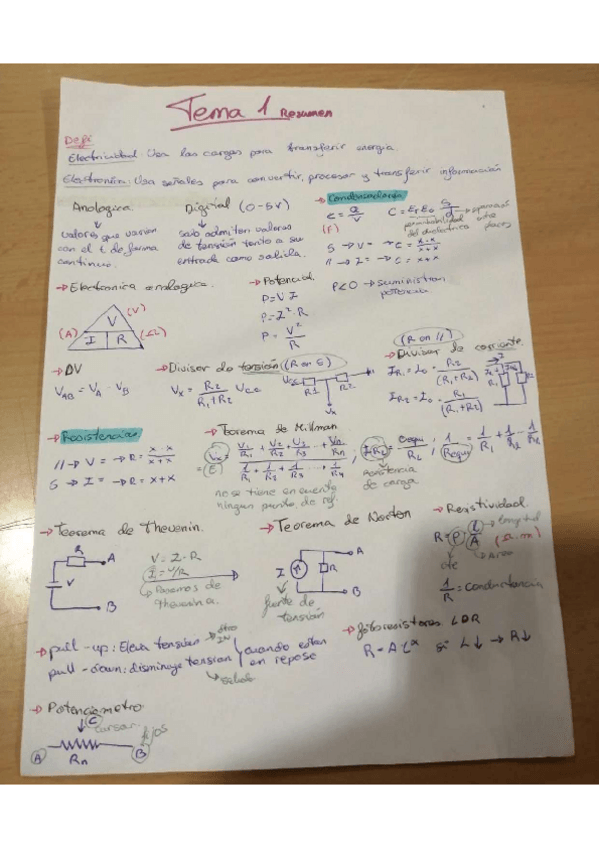 Tema 1 Resumen
Defi
Electricidad: Usa las cargas para transferir energía.
Electrónica: Usa señales para convertir, procesar y transferir información
Analogica
↓
valores que varian
con el t de forma
continuo.
Digital (0-5V)
↓
solo admiten valores
de tensión tanto a su
entrada como salida.
→ Condensadores
C = Q/V
(F)
C = ErE0 S/d → separación entre placas
permitibilidad del dielectrico
S → V = → C = x·x/x+x
// → I = → C = x+x
→ Electronica analogica.
(V)
V
(A) I R (Ω)
→ Potencial
P=V·I
P=I²·R
P = V²/R
P<0 → suministran
potencia
→ DV
V_AB = V_A - V_B
→ Divisor de tensión (R en S)
V_x = R2/R1+R2 Vcc
Vcc R1 R2
Vx
(R en //)
→ Divisor de corriente
I_R1 = I0 · R2/(R1+R2)
I_R2 = I0 · R1/(R1+R2)
→ Resistencias
// → V = → R = x·x/x+x
S → I = → R = x+x
Teorema de Millman
Vx = V1/R1 + V2/R2 + V3/R3 ... + Vn/Rn
(E) 1/R1 + 1/R2 + 1/R3 ...
no se tiene en cuenta
ningun punto de ref.
Resistencia
de carga.
1/Requi = 1/R1 + 1/R2
→ Teorema de Thevenin.
R A
V
B
V = I·R
I = V/R
Pasamos de
Thevenin a
→ Teorema de Norton
A
I R
B
fuente de
tensión
→ Resistividad.
R = ρ · l/A → longitud
(Ω·m)
→ Area
cte
1/R = Conductancia
→ pull-up: Eleva tension
pull-down: disminuye tension
cuando estan
en reposo
→ fotoresistores LDR
R = A·L^α si L↓ → R↓
→ Potenciometro
↓ C cursor
A Rn B fijos